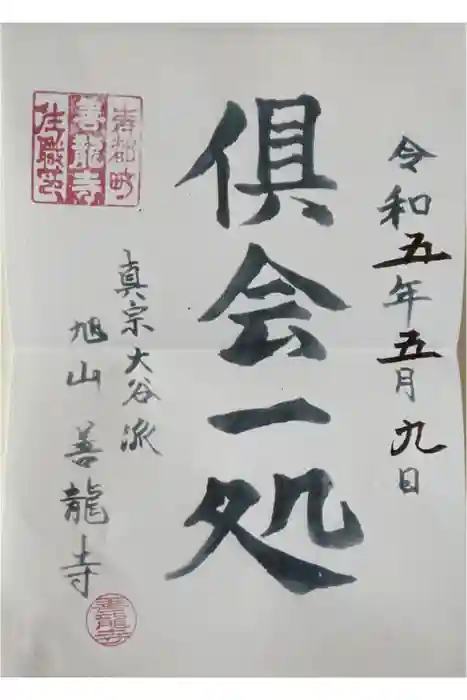 令和五年五月九日
俱会一処
真宗大谷派
旭山善龍寺
善龍寺
住職芯
善龍寺